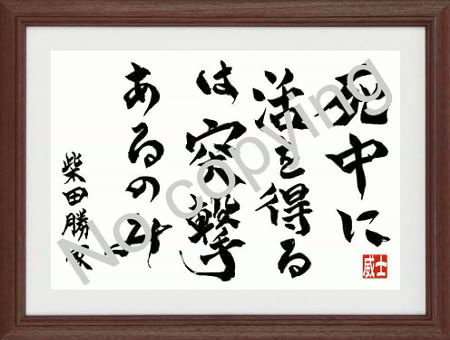 死中に
活を得る
は突撃
あるのみ
柴田勝家
威士
No copying